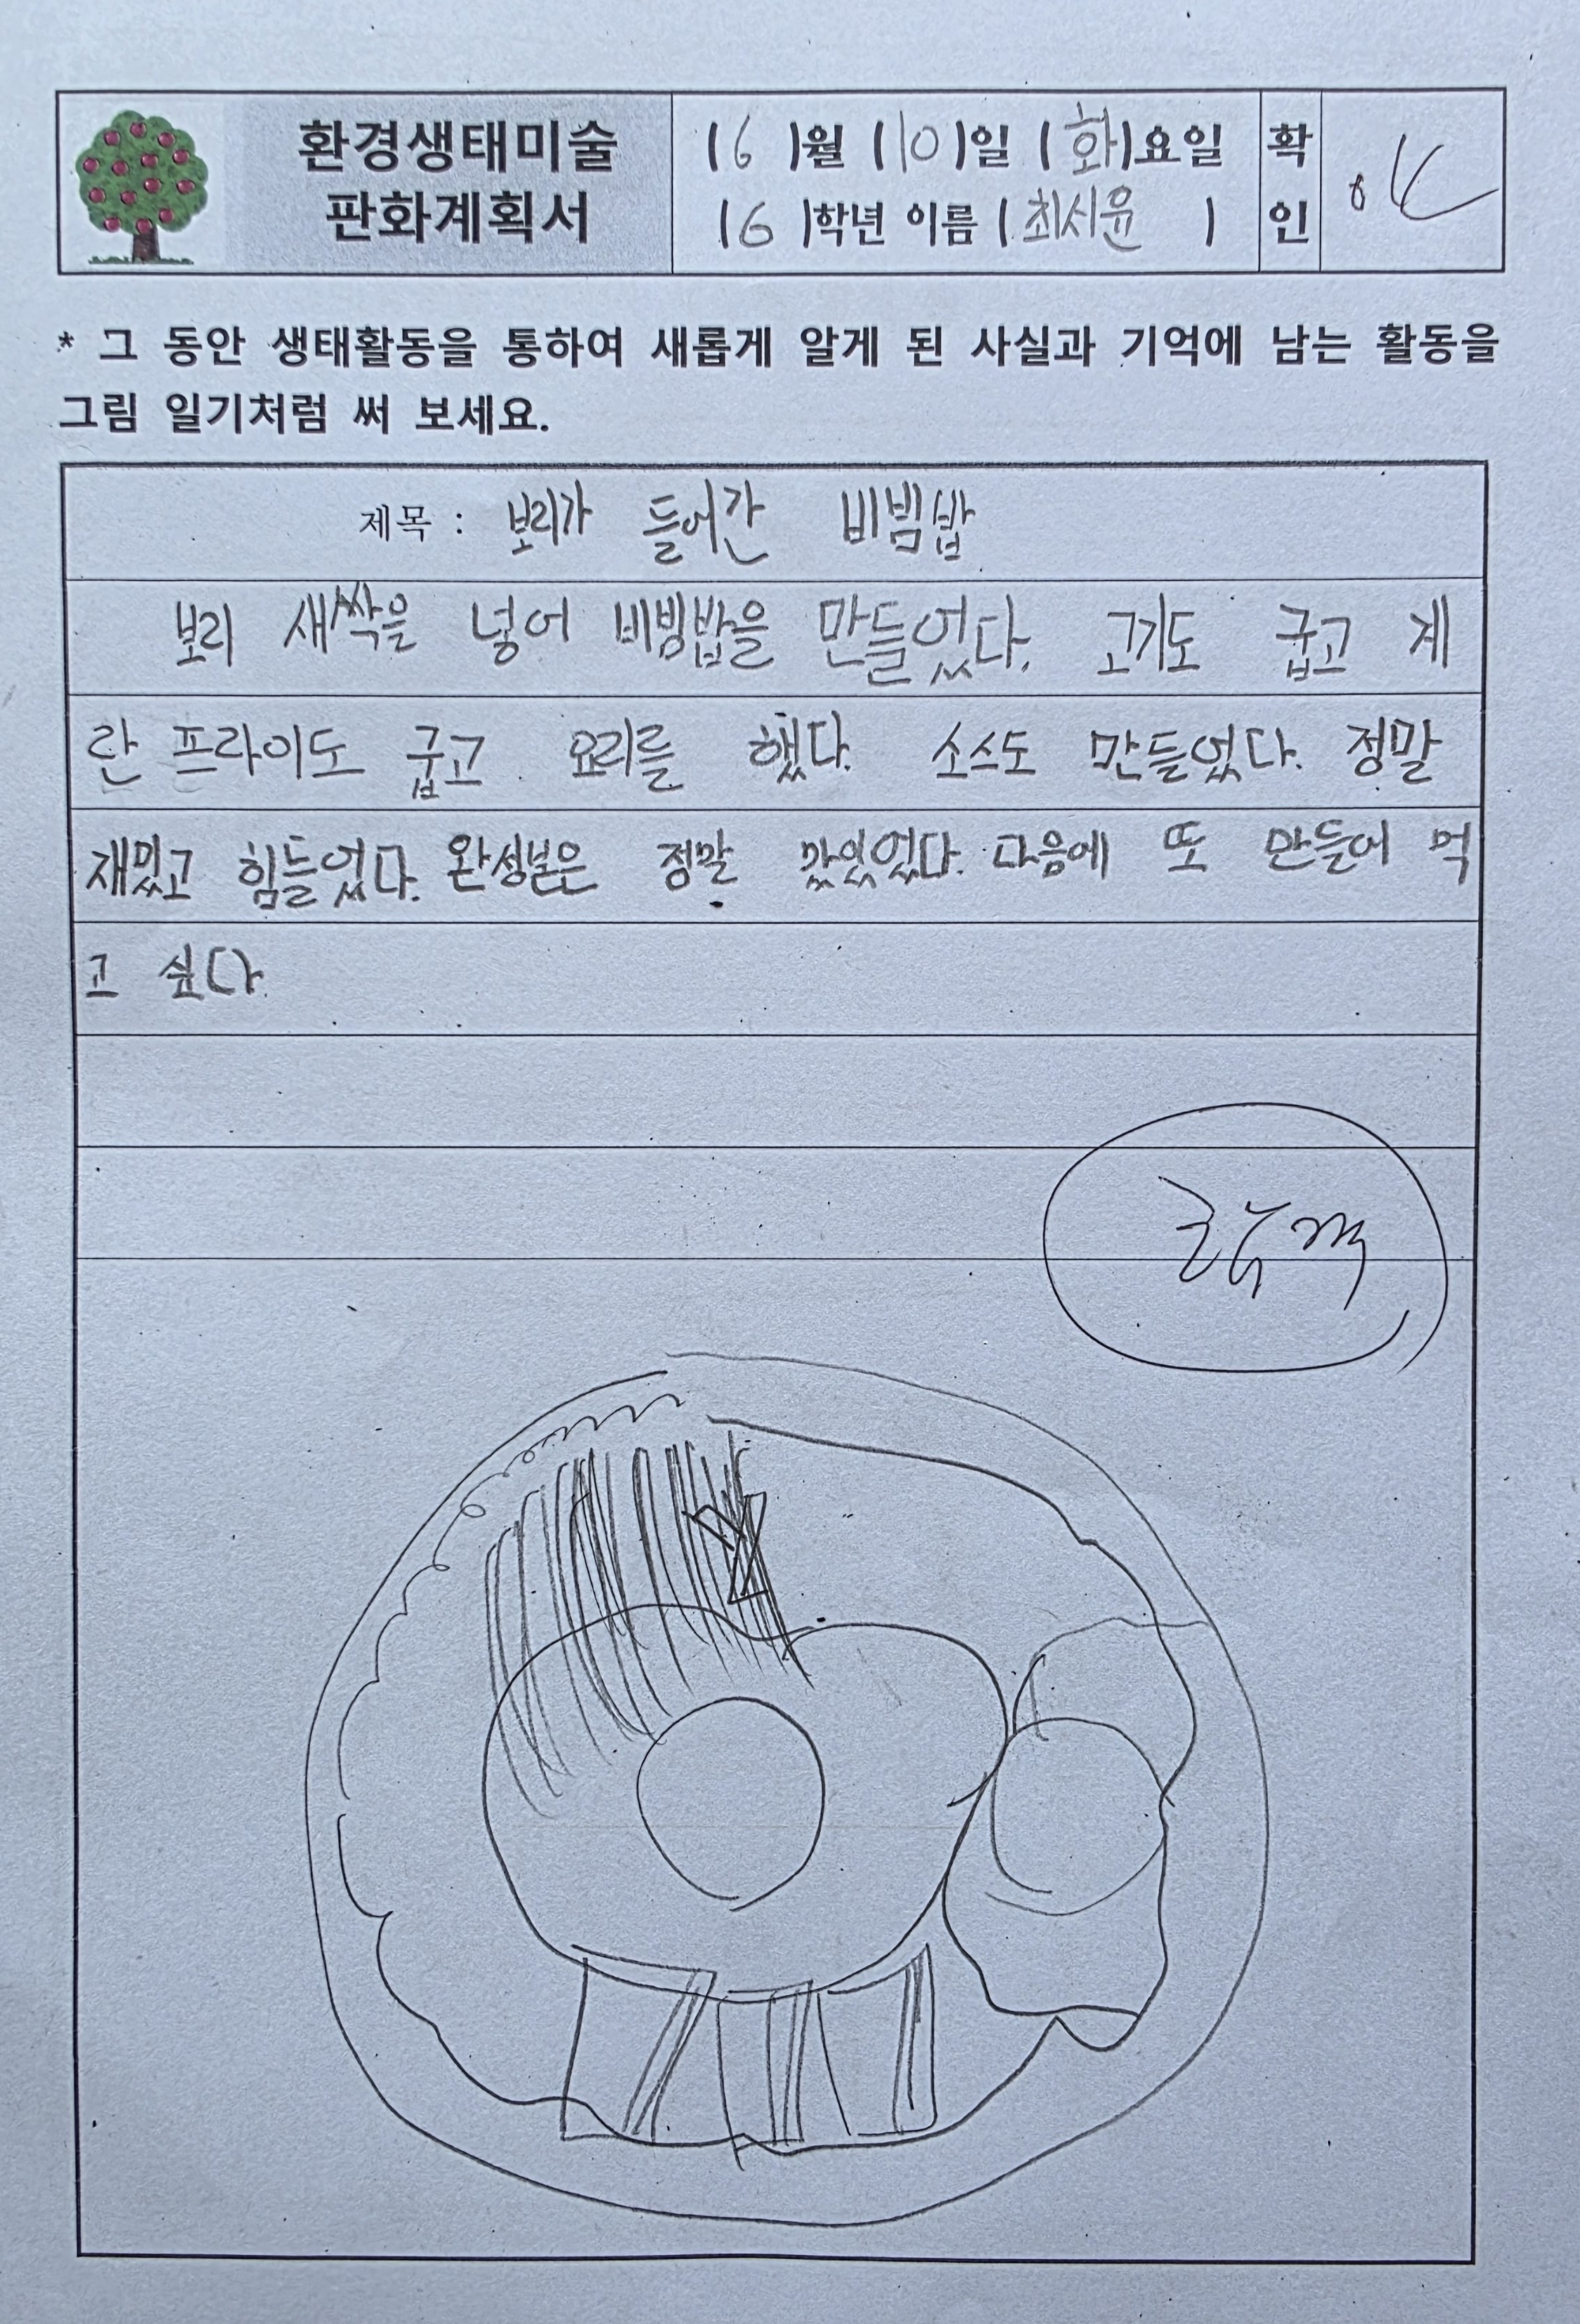 환경생태미술
판화계획서
( 6 )월 (10)일 (화)요일
( 6 )학년 이름 ( 최시윤 )
확
인
ok
* 그 동안 생태활동을 통하여 새롭게 알게 된 사실과 기억에 남는 활동을
그림 일기처럼 써 보세요.
제목 : 보리가 들어간 비빔밥
보리 새싹을 넣어 비빔밥을 만들었다. 고기도 굽고 계
란 프라이도 굽고 요리를 했다. 소스도 만들었다. 정말
재밌고 힘들었다. 완성본은 정말 맜있었다. 다음에 또 만들어 먹
고 싶다.